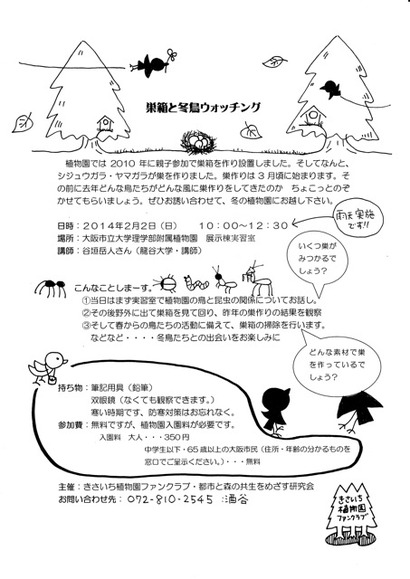 巣箱と冬鳥ウォッチング
植物園では 2010 年に親子参加で巣箱を作り設置しました。そしてなんと、
シジュウカラ・ヤマガラが巣を作りました。巣作りは 3 月頃に始まります。そ
の前に去年どんな鳥たちがどんな風に巣作りをしてきたのか ちょこっとのぞ
かせてもらいましょう。ぜひお誘い合わせて、冬の植物園にお越し下さい。
日時：2014年2月2日（日） 10：00～12：30
雨天 実施
です!!
場所：大阪市立大学理学部附属植物園 展示棟実習室
講師：谷垣岳人さん（龍谷大学・講師）
いくつ巣が
みつかるで
しょう？
こんなことしまーす。
①当日はまず実習室で植物園の鳥と昆虫の関係についてお話し。
②その後野外に出て巣箱を見て回り、昨年の巣作りの結果を観察
③そして春からの鳥たちの活動に備えて、巣箱の掃除を行います。
などなど・・・・冬鳥たちとの出会いをお楽しみに
どんな素材で巣
を作っているで
しょう？
持ち物：筆記用具（鉛筆）
双眼鏡（なくても観察できます。）
寒い時期です、防寒対策はお忘れなく。
参加費：無料ですが、植物園入園料が必要です。
入園料 大人・・・350円
中学生以下・65歳以上の大阪市民（住所・年齢の分かるものを
窓口でご呈示ください。）・・・無料
主催：きさいち植物園ファンクラブ・都市と森の共生をめざす研究会
お問い合わせ先：072-810-2545 :涌谷
きさいち
植物園
ファンクラブ